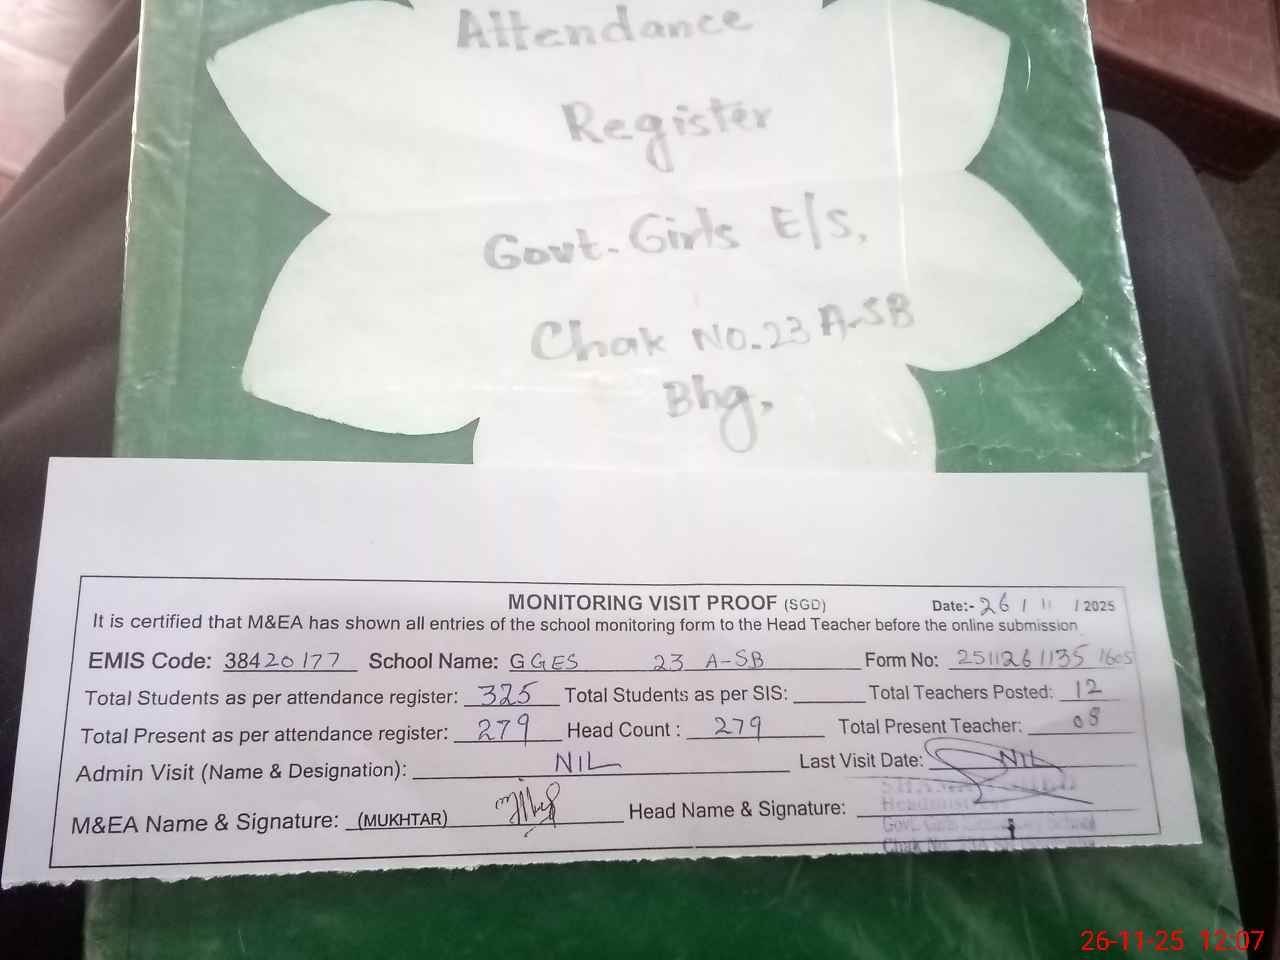 Attendance
Register
Govt. Girls E/S,
Chak No. 23 A-SB
Bhg,
MONITORING VISIT PROOF (SGD)
Date:- 26 / 11 / 2025
It is certified that M&EA has shown all entries of the school monitoring form to the Head Teacher before the online submission
EMIS Code: 38420177 School Name: GGES 23 A-SB Form No: 2511261135 1605
Total Students as per attendance register: 325 Total Students as per SIS: Total Teachers Posted: 12
Total Present as per attendance register: 279 Head Count : 279 Total Present Teacher: 08
Admin Visit (Name & Designation): NIL Last Visit Date: NIL
M&EA Name & Signature: (MUKHTAR) Head Name & Signature:
Headmistress
Govt. Girls Elementary School
Chak No.
26-11-25 12:07